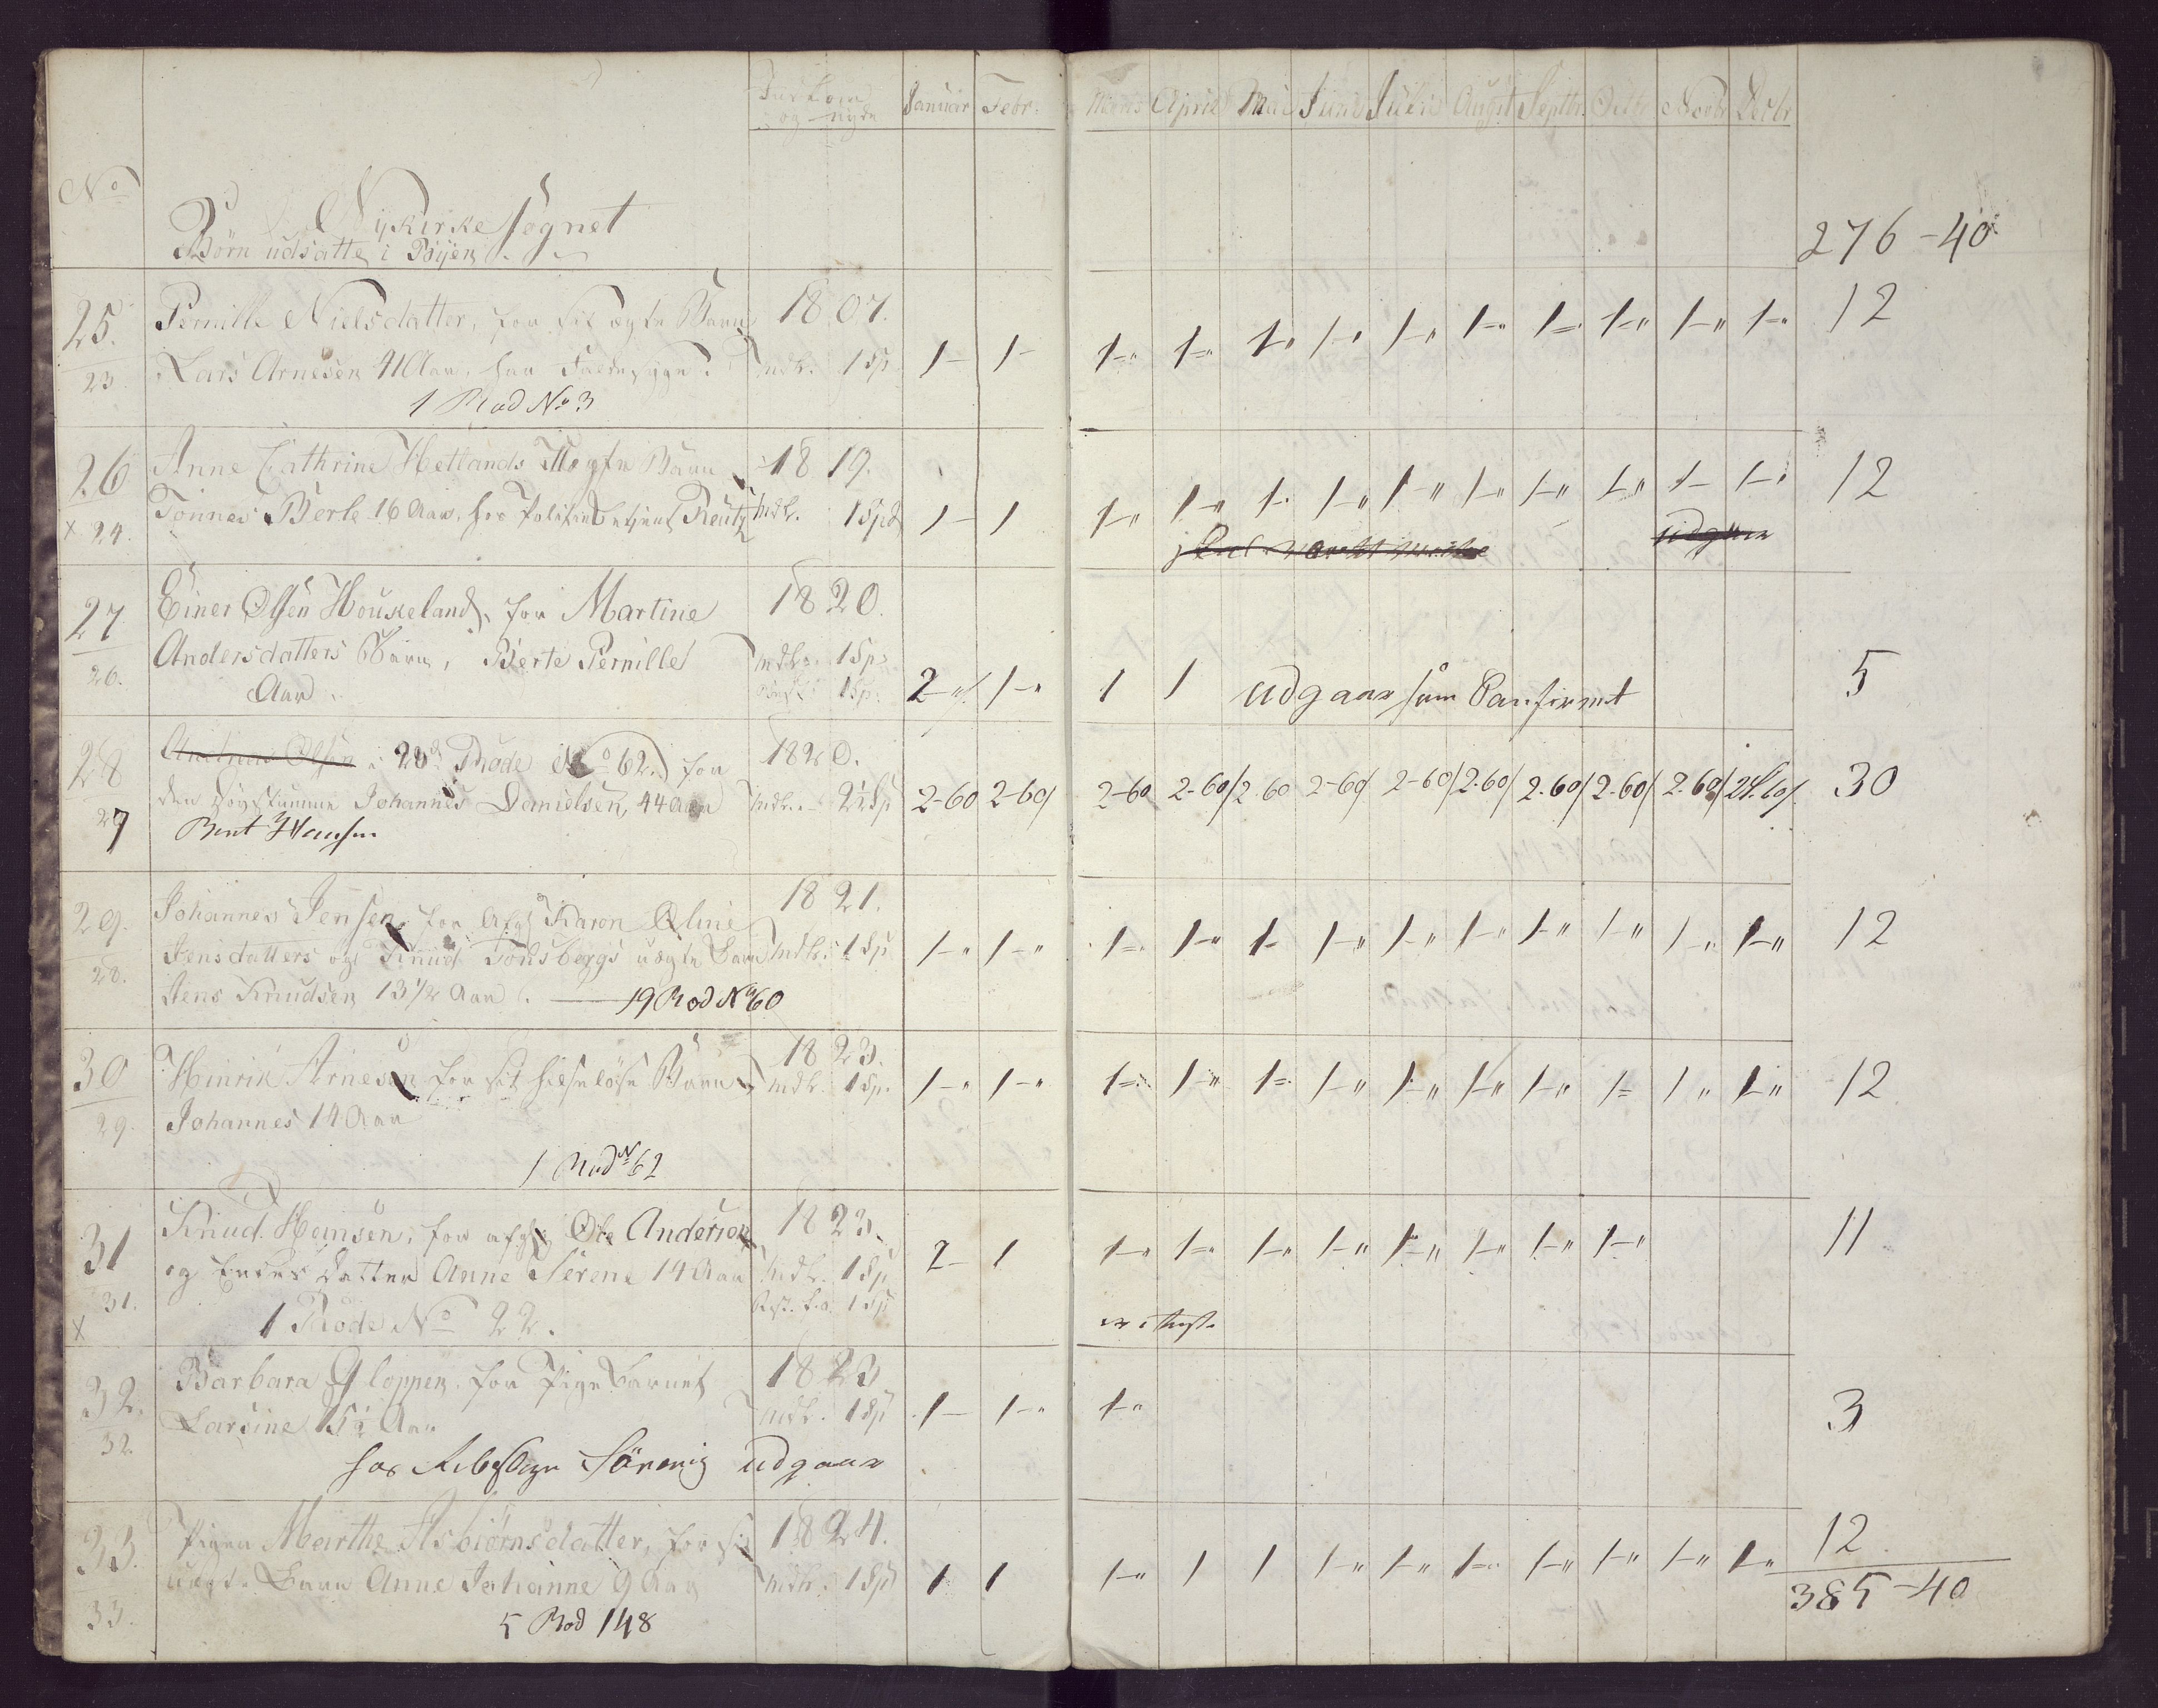 Januar Febr: Marts April Mai Juni Juli Augst Septbr. Octbr Novbr Decbr
No
Nykirke Sognet
Börn udsatte i Byen
276-40
25. Pernille Nielsdatter, for sit ægte Barn 1807.
1- 1- 1-" 1-" 1-" 1-" 1-" 1-" 1-" 1-" 1-" 1-" 12
23. Lars Arnesen 41 Aar, har Faldesyge. Mdl. 1 Sp
1 Rod No 3
26 Anne Cathrine Hetlands Uægte Barn 1819.
x 24. Tönnes Berle 16 Aar, hos Politiebetjent Reutz Mdl. 1 Spd
1- 1 1-" 1-" 1- 1-" 1-" 1-" 1-" 1-" 1- 1-" 12
udgaar
27 Einer Olsen Houkeland, for Martine 1820.
26. Andersdatters Barn, Berte Pernille Mdl. 1 Sp.
Aar 1 Sp.
2-" 1-" 1 1 udgaar som Confirmt 5
28 Andreas Olsen i 20d Rode No 62. for 1820.
den Johannes Danielsen, 44 Aar Mdl. 2½ Sp
2-60 2-60/ 2-60 2-60/ 2.60 2-60/ 2-60/ 2.60/ 2.60/ 2.60/ 2.60/ 2.60/ 30
27 Bent Hansen
29. Johannes Jensen, for Afg Karen Oline 1821.
Jensdatters og Knud Tönsbergs uægte Barn Mdl. 1 Sp
1-" 1-" 1-" 1-" 1- 1-" 1-" 1-" 1-" 1-" 1-" 1-" 12
28. Jens Knudsen 13½ Aar. 19 Rod No 60
30 Hinrik Arnesen for sit helselöse Barn 1823.
Mdl. 1 Sp.
1-" 1-" 1-" 1-" 1-" 1-" 1-" 1-" 1-" 1- 1" 1-" 12
29. Johannes 14 Aar
1 Rod No 62
31 Knud Hansen, for afg Ole Andersen 1823.
og Enkes Datter Anne Serene 14 Aar Mdl. 1 Sp
2- 1 1-" 1-" 1-" 1-" 1-" 1-" 1-" 1-" 11
31. Rest. 1 Sp
x 1 Rode No 22.
32. Barbara Gloppen for Pigebarnet 1823
Larsine 15½ Aar Mdl. 1 Sp
1- 1-" 1-" 3
32. hos udgaar
33. Pigen Marthe Asbiörnsdatter, for sit 1824.
uægte Barn Anne Johanne 9 Aar Mdl. 1 Sp
1 1 1-" 1 1 1-" 1-" 1-" 1-" 1-" 1-" 1-" 12
33. 5 Rod 148
385-40